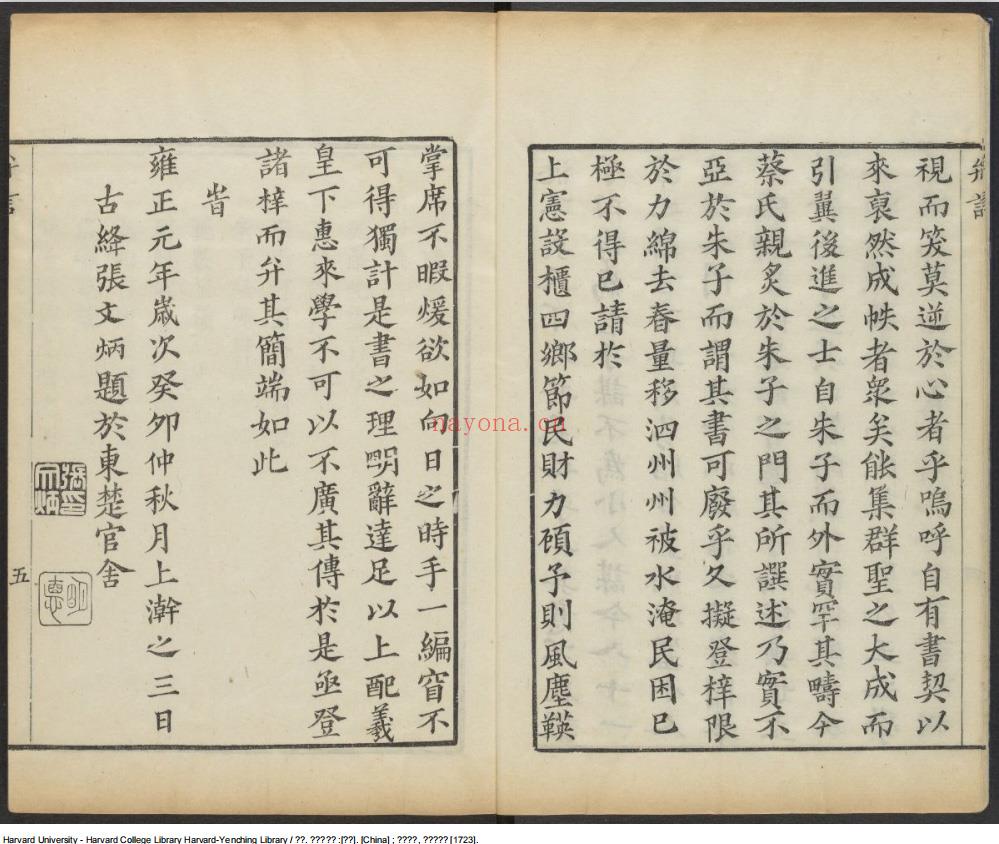 弁言
視而笑莫逆於心者乎嗚呼自有書契以
來裒然成帙者衆矣能集群聖之大成而
引翼後進之士自朱子而外實罕其疇今
蔡氏親炙於朱子之門其所譔述乃實不
亞於朱子而謂其書可廢乎久擬登梓限
於力綿去春量移泗州州被水淹民困已
極不得已請於
上憲設櫃四鄉節民財力碩予則風塵鞅
掌席不暇煖欲如向日之時手一編窅不
可得獨計是書之理明辭達足以上配羲
皇下惠來學不可以不廣其傳於是亟登
諸梓而弁其簡端如此
旹
雍正元年歲次癸卯仲秋月上澣之三日
古絳張文炳題於東楚官舍
張文炳印
五
nayona.cn
Harvard University - Harvard College Library Harvard-Yenching Library / ??. ????? :[??]. [China] ; ????, ????? [1723].